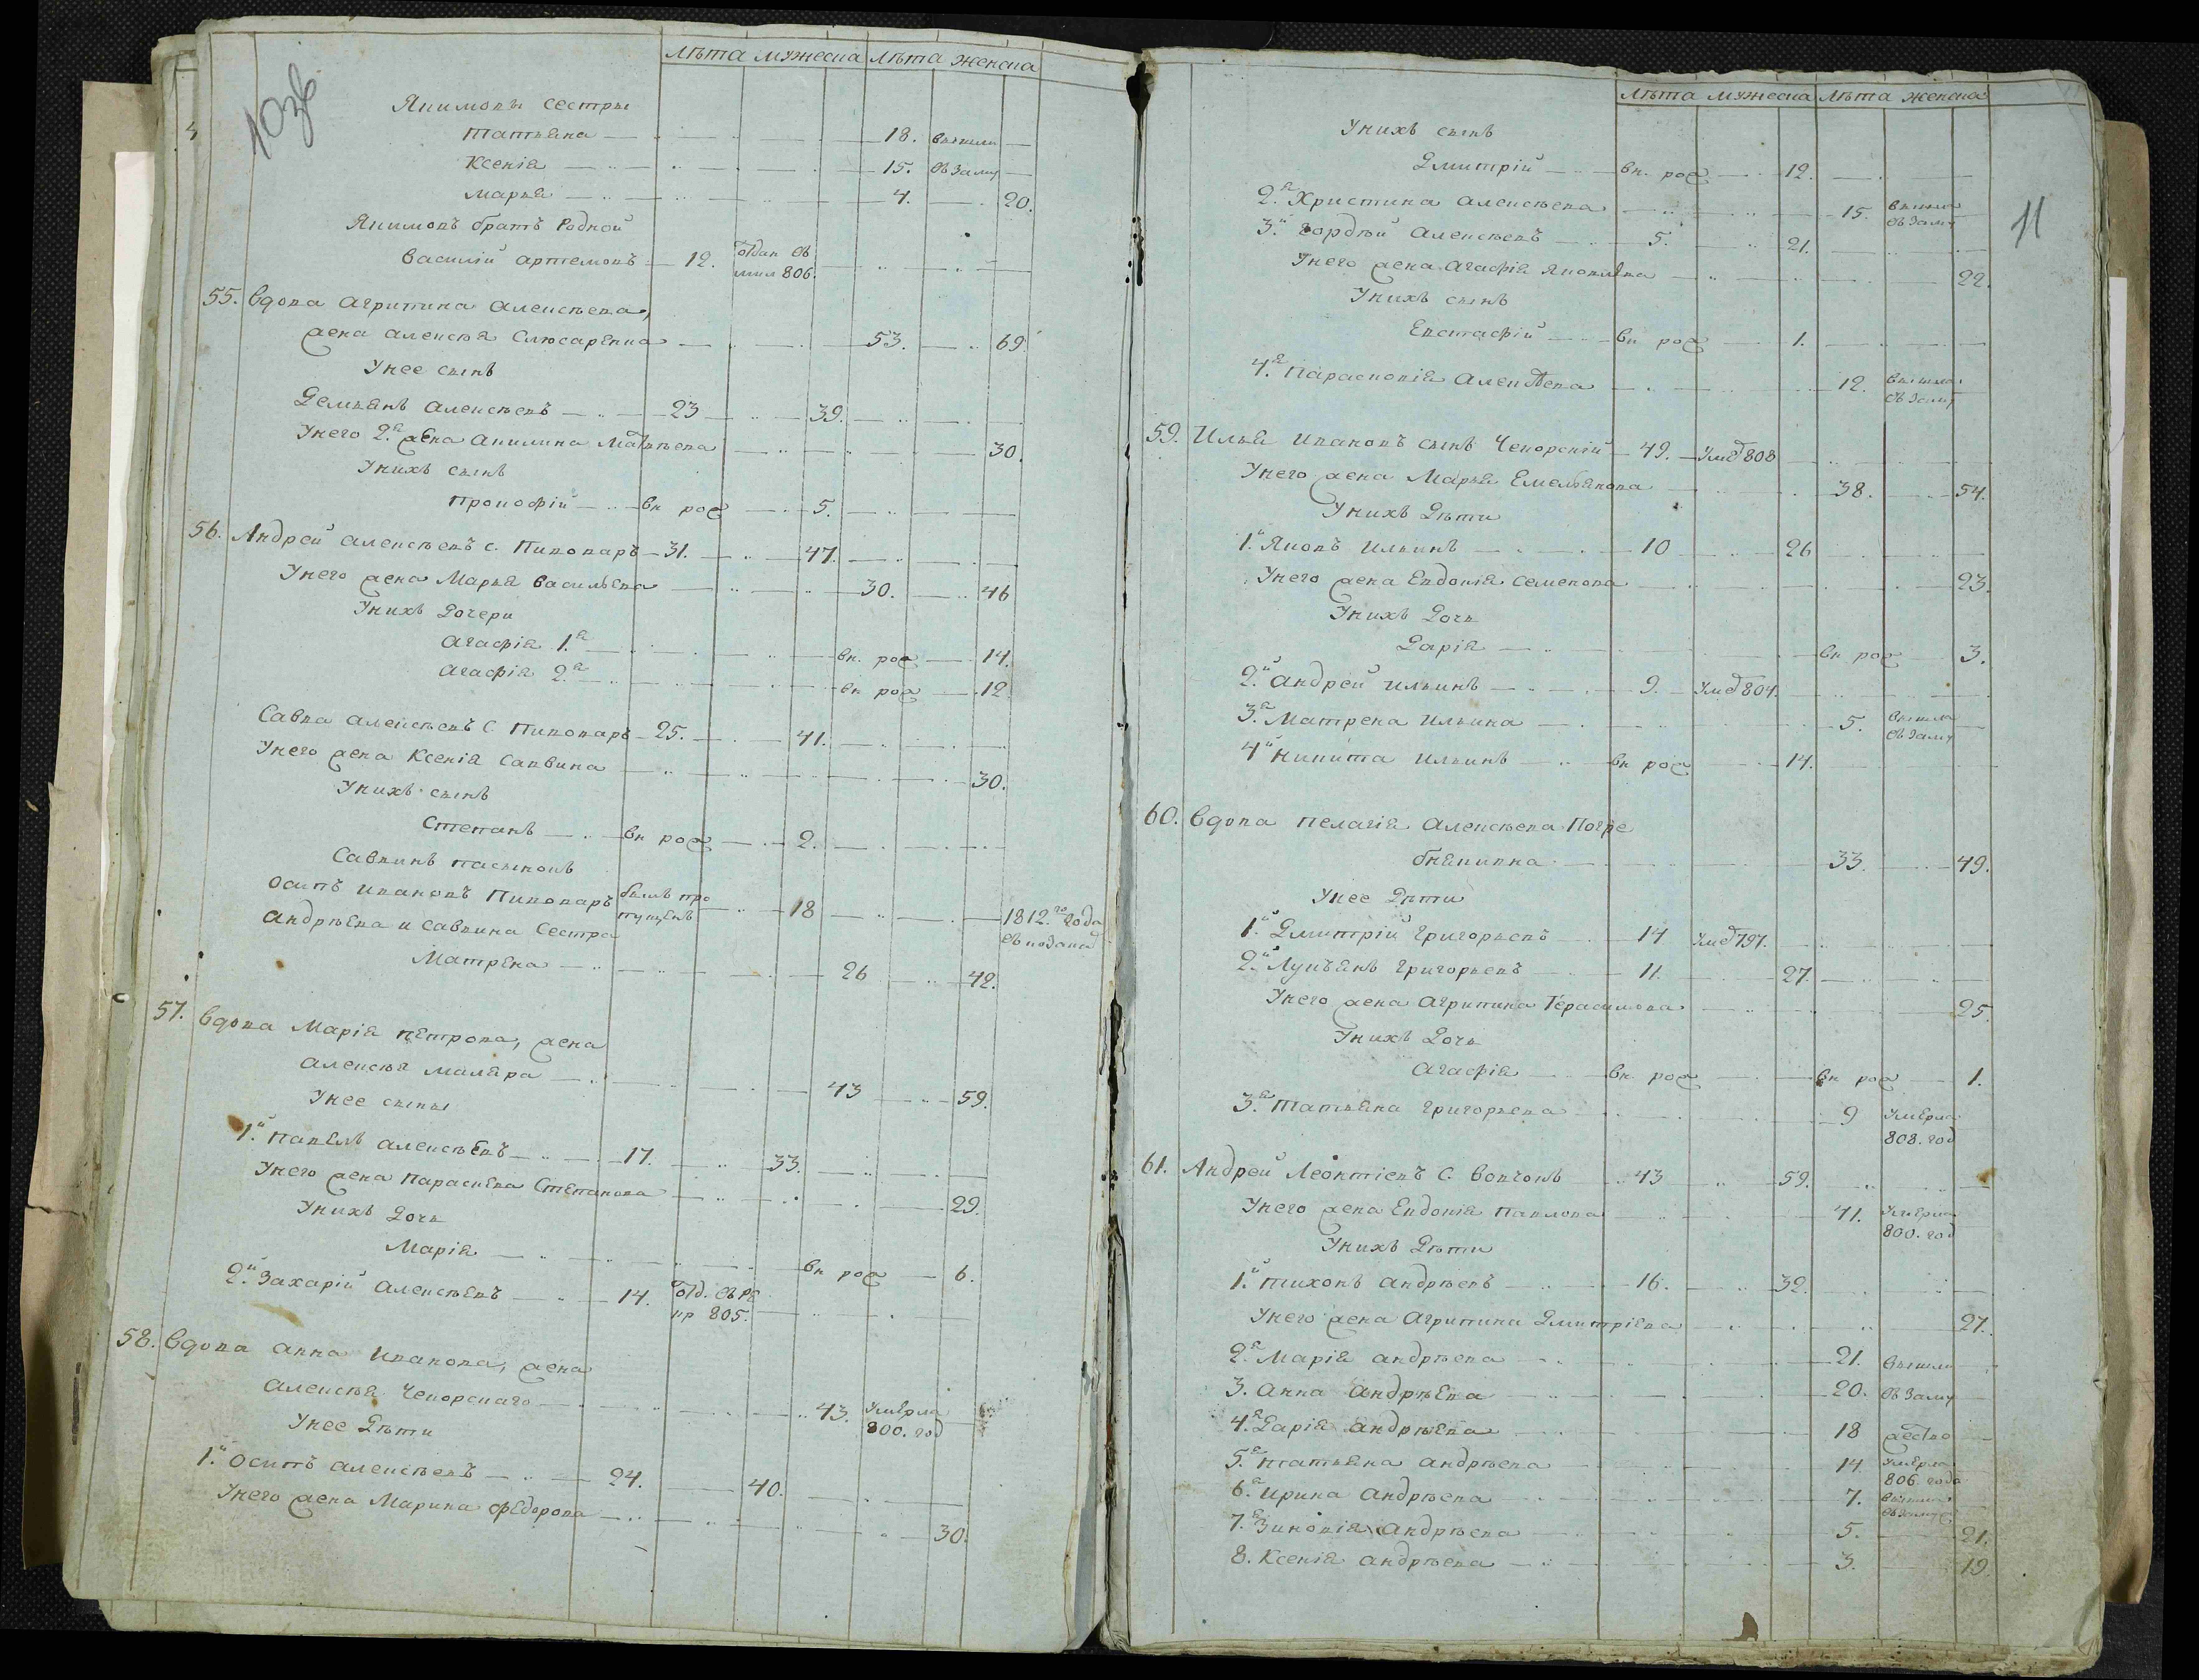 10 зв
Лѣта мужеска Лѣта женска
Якимовы сестры
Татьяна 18. вышли
Ксенія 15. въ заму
Марья 4. 20.
Якимовъ братъ родной
Василій Артемовъ 12. отдан въ
мил 806.
55. Вдова Агрипина Алексѣева,
жена Алексѣя Слюсаренка 53. 69.
У нее сынъ
Демьянъ Алексѣевъ 23 39.
У него 2.я жена Акилина Матвѣева 30.
У нихъ сынъ
Прокофій вн рож 5.
56. Андрей Алексѣевъ с. Пивоваръ 31. 47.
У него жена Марья Васильева 30. 46
У нихъ дочери
Агафія 1.я вн. рож 14.
Агафія 2.я вн рож 12.
Савва Алексѣевъ с. Пивоваръ 25. 41.
У него жена Ксенія Саввина 30.
У нихъ сынъ
Степанъ вн рож 2.
Саввинъ пасынокъ
Осипъ Ивановъ Пивоваръ былъ про
пущенъ 18 1812.го года
въ показа
Андрѣева и Саввина сестра
Матрена 26 42.
57. Вдова Марія Петрова, жена
Алексѣя Маляра 43 59.
У нее сыны
1.й Павелъ Алексѣевъ 17. 33.
У него жена Параскева Степанова 29.
У нихъ дочь
Марія вн рож 6.
2.й Захарій Алексѣевъ 14. отд. въ ре
кр 805.
58. Вдова Анна Иванова, жена
Алексѣя Чекорскаго 43. умерла
800. год
У нее дѣти
1.й Осипъ Алексѣевъ 24. 40.
У него жена Марина Федорова 30.
11
Лѣта мужеска Лѣта женска
У нихъ сынъ
Дмитрій вн. рож 12.
2.я Христина Алексѣева 15. вышла
въ заму
3.й Гордѣй Алексѣевъ 5. 21.
У него жена Агафія Яковлева 22.
У нихъ сынъ
Евстафій вн рож 1.
4.я Парасковія Алексѣева 12. вышла
въ заму
59. Илья Ивановъ сынъ Чекорскій 49. умер 808
У него жена Марья Емельянова 38. 54.
У нихъ дѣти
1.й Яковъ Ильинъ 10 26
У него жена Евдокія Семенова 23.
У нихъ дочь
Дарія вн рож 3.
2.й Андрей Ильинъ 9. умер 804.
3.я Матрена Ильина 5. вышла
въ заму
4й Никита Ильинъ вн рож 14.
60. Вдова Пелагія Алексѣева Погре
бнякивна 33. 49.
У нее дѣти
1.й Дмитрій Григорьевъ 14 умер 797.
2.й Лукъянъ Григорьевъ 11. 27.
У него жена Агрипина Герасимова 25.
У нихъ дочь
Агафія вн. рож вн рож 1.
3.я Татьяна Григорьева 9 умерла
808. год
61. Андрей Леонтіевъ с. Вовчокъ 43 59.
У него жена Евдокія Павлова 41. умерла
800. год
У нихъ дѣти
1.й Тихонъ Андрѣевъ 16. 32.
У него жена Агрипина Дмитріева 27.
2.я Марія Андрѣева 21. вышли
3. Анна Андрѣева 20. въ заму
4.я Дарія Андрѣева 18 жество
5.я Татьяна Андрѣева 14. умерла
806 года
6.я Ирина Андрѣева 7. вышла
въ замуж
7.я Зиновія Андрѣева 5. 21.
8. Ксенія Андрѣева 3. 19.